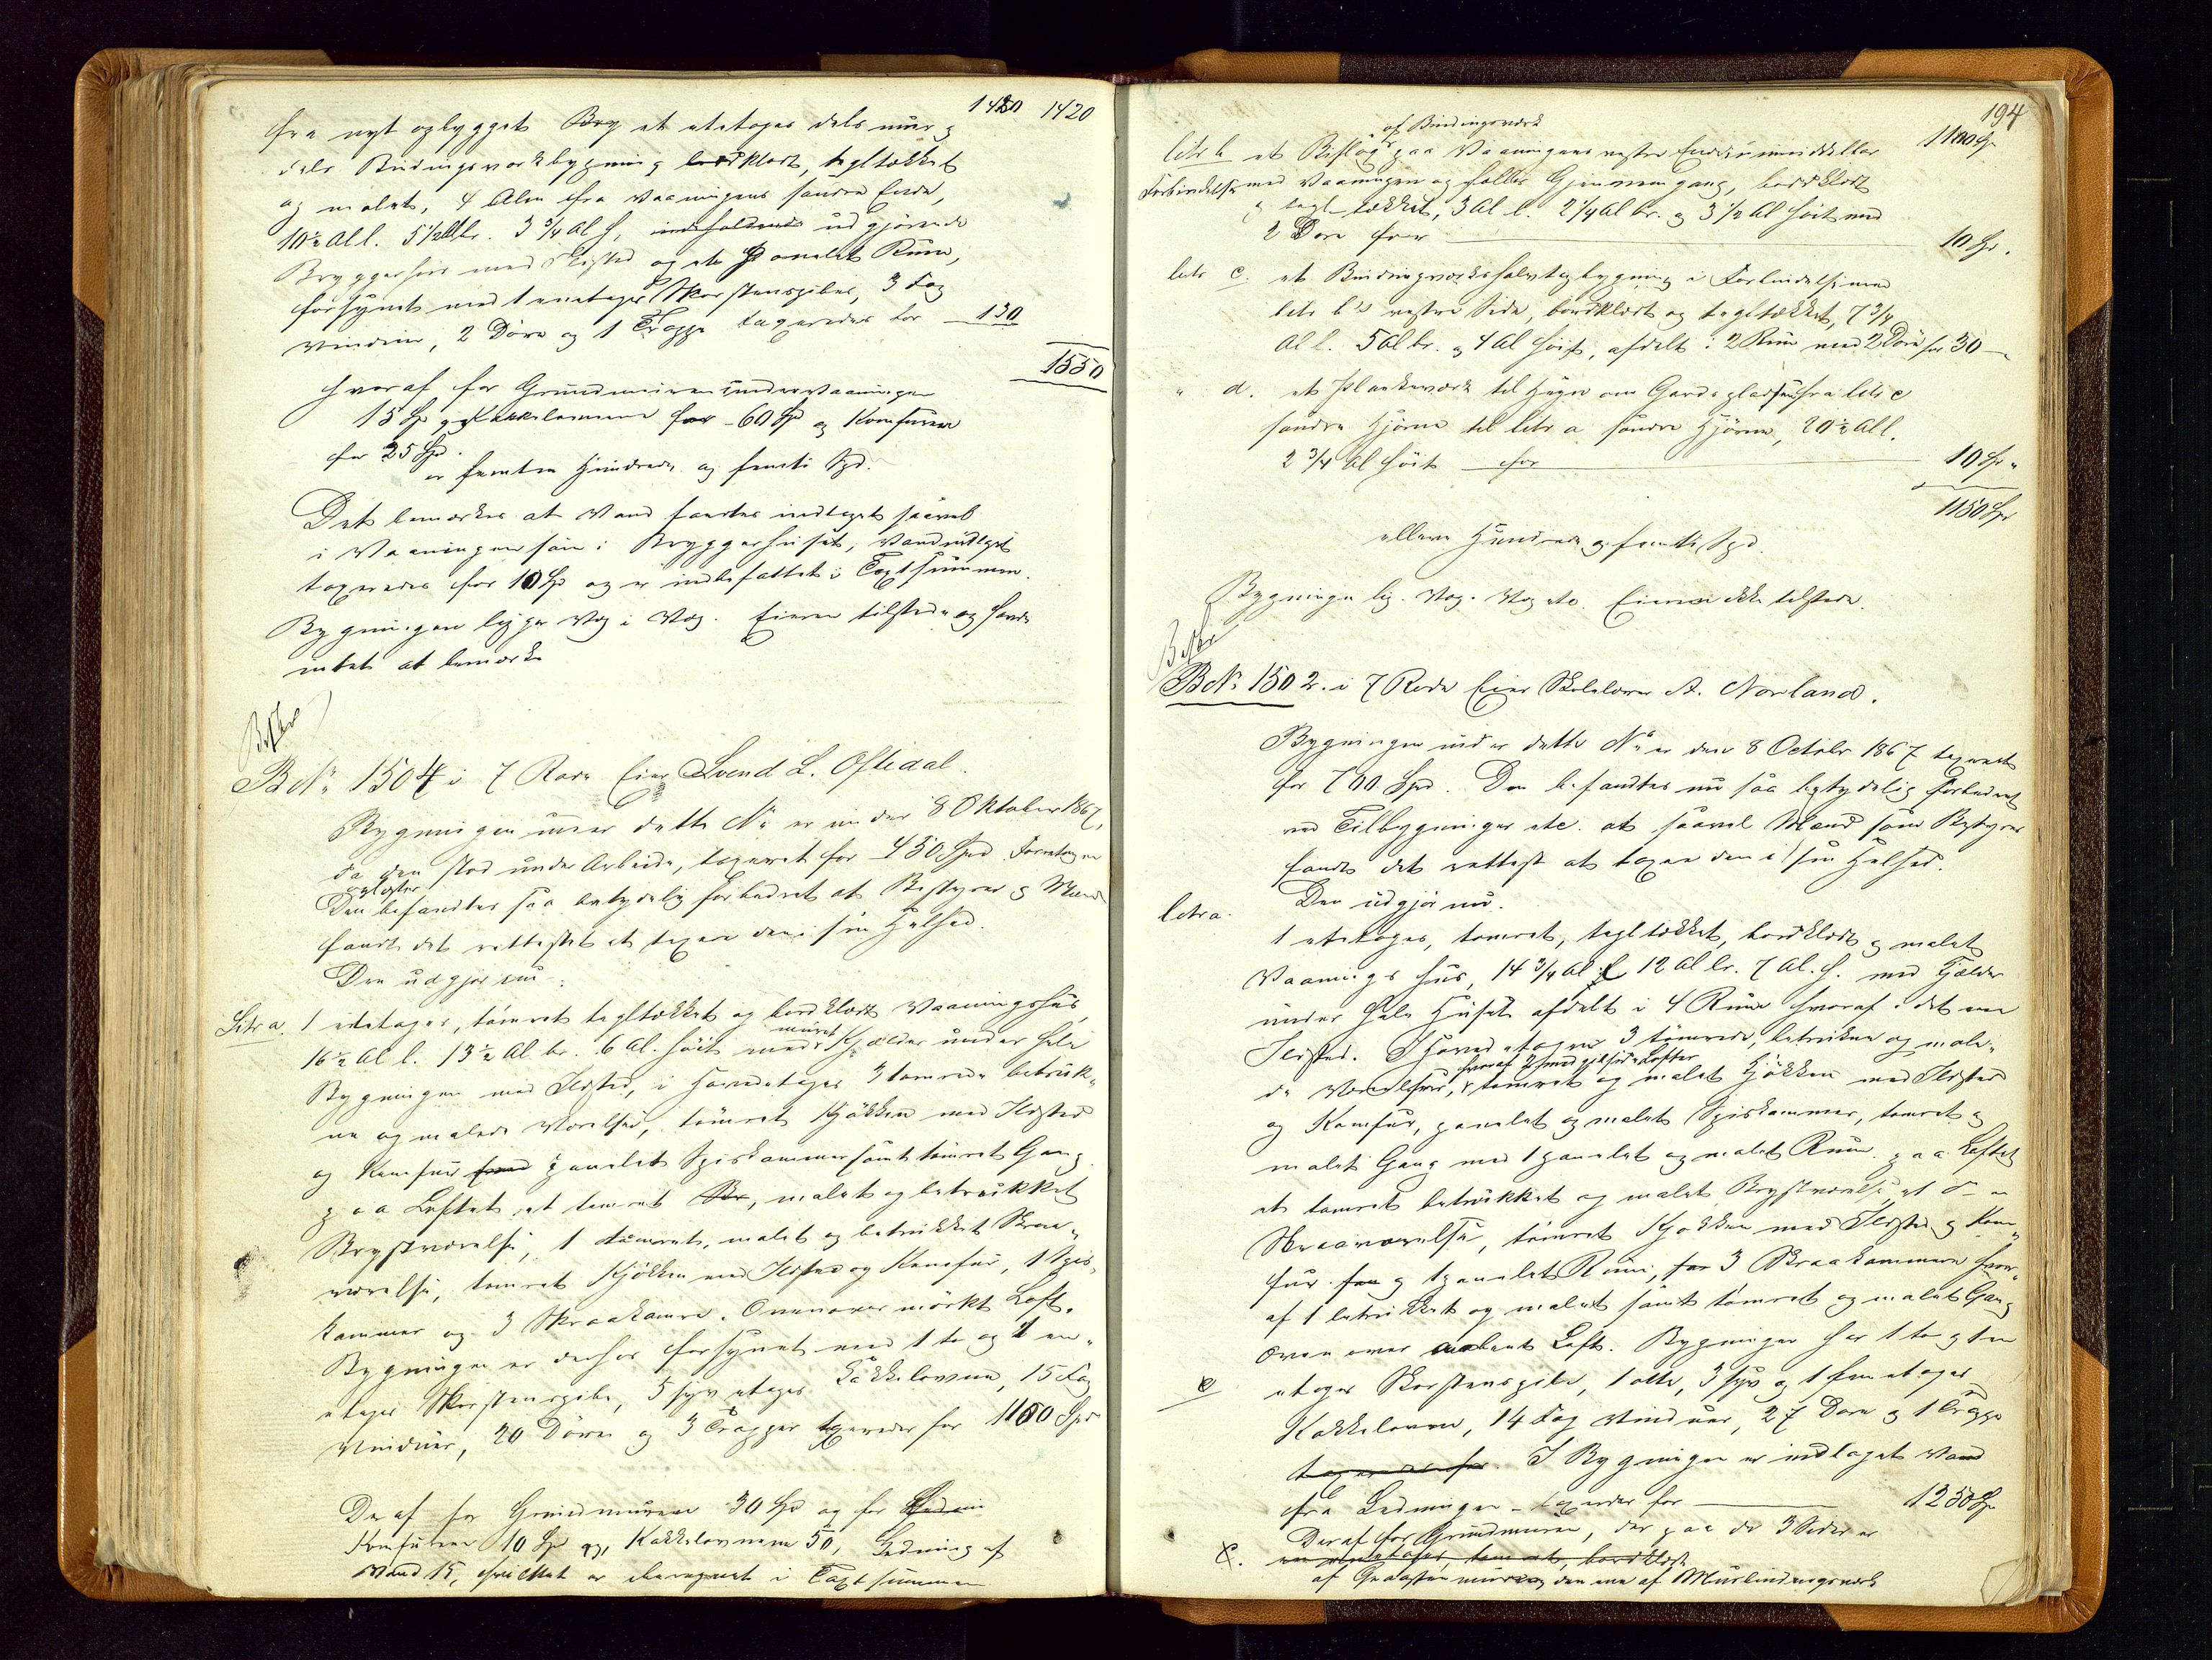 1420 1420
fra nyt opbygget Bry et etetages dels muur og
dels Bindingsværksbygning bordklædt, tegltækket
og malet, 4 Alen fra Vaaningens søndre Ende,
10½ Al l. 5½ Al br. 3¾ Al h, indeholdende udgjørende
Bryggerhuus med Ildsted og et panelet Ruum,
forsynet med 1 enetages Skorstenspibe, 3 Fag
Vinduer, 2 Døre og 1 Trappe taxeredes for 130
1550
hvoraf for Grundmuren under Vaaningen
15 Spd og Kakkelovnene for 60 Spd og Komfuren
for 25 Spd.
er femten Hundrede og femti Spd.
Det bemærkes at Vand fandtes indlagt saavel
i Vaaningen som i Bryggerhuset, Vandindlæget
taxeredes for 10 Spd og er indbefattet i Taxtsummen.
Bygningen ligger Væg i Væg. Eieren tilstede og havde
intet at bemærke
B.N: 1504 i 7 Rode Eier Svend L. Oftedal.
Bygningen under dette N: er under 8 Oktober 1867,
da den stod under Arbeide, taxeret for 450 Spd
Den befandtes saa betydelig forbedret at Bestyrer og Mænd
fandt det rettest at taxere den i sin Helhed.
Den udgjør nu:
Litr a. 1 etetages, tømret tegltækket og bordklædt Vaaningshus,
16½ Al l. 13½ Al. br. 6 Al. høit med muret Kjælder under hele
Bygningen med Ildsted, i Hovedetagen 3 tømrede betrukk-
ne og malede Værelser, tømret Kjøkken med Ildsted
og Komfur samt panelet Spiskammer samt tømret Gang
paa Loftet et tømret Br, malet og betrukket
Brystværelse, 1 tømret, malet og betrukket Skraa-
værelse, tømret Kjøkken med Ildsted og Komfur, 1 Spis-
kammer og 3 Skraakamre. Ovenover mørkt Loft.
Bygningen er derhos forsynet med 1 to og 1 en-
etages Skorstenspibe, 5 syv etages Kakkelovne, 15 Fag
Vinduer, 20 Døre og 3 Trapper taxeredes for 1100 Spd
Deraf for Grundmuren 30 Spd og for
Komfurene 10 Spd og Kakkelovnene 50, Ledning af
Vand 15, hvilket er iberegnet i Taxtsummen
194
litr b et Bislag af Bindingsværk paa Vaaningens vestre Ende i umiddelbar 1100 Spd
Forbindelse med Vaaningen og fælles Gjennemgang, bordklædt
og tegltækket, 3 Al l. 2¼ Al br. og 3½ Al høit med
2 Døre for 10 Spd.
litr c. et Bindingsværks halvtagbygning i Forbindelse med
litr b's vestre Side, bordklædt og tegltækket, 7¾
Al l. 5 Al br. og 4 Al høit, afdelt i 2 Rum med 2 Døre for 30
" d. et Plankeværk til Hegn om Gardspladsen fra litr c
søndre Hjørne til litr a søndre Hjørne, 20½ Al l.
2¾ Al høit for 10 Spd "
1150 Spd
elleve Hundrede og femti Spd.
Bygningen lig. Væg i Væg etc. Eieren ikke tilstede.
B.N: 1502. i 7 Rode Eier Skolelærer A. Norland.
Bygningen under dette N: er den 8 October 1867 taxeret
for 700 Spd. Den befandtes nu saa betydelig forbedret
ved Tilbygninger etc. at saavel Mænd som Bestyrer
fandt det rettest at taxere den i sin Helhed.
Den udgjør nu.
litr a.
1 etetages, tømret, tegltækket, bordklædt og malet
Vaaningshus, 14¾ Al l 12 Al br. 7 Al. h. med Kjælder
under hele Huset afdelt i 4 Rum hvoraf i det ene
Ildsted. I Hovedetagen 3 tømrede, betrukne og male-
hvoraf 2 med gibsede Lofter
de Værelser, 1 tømret og malet Kjøkken med Ildsted
og Komfur, panelet og malet Spiskammer, tømret og
malet Gang med 1 panelet og malet Rum. paa Loftet
et tømret betrukket og malet Brystværelse, et do
Skraaværelse, tømret Kjøkken med Ildsted og Kom-
fur og 1 panelet Rum, 3 Skraakammere hvor-
af 1 betrukket og malet samt tømret og malet Gang
Oven over mørkt Loft. Bygningen har 1 to og 1 en
etages Skorstenspibe, 1 otte, 3 syv og 1 fem etages
Kakkelovne, 14 Fag Vinduer, 27 Døre og 1 Trappe
taxeredes for. I Bygningen er indlagt Vand
fra Ledningen taxeredes for 1250 Spd
Deraf for Grundmuren, der paa de 3 Sider er
en enetages, tømret, bordklædt
af Graasten den ene af Muurbindingsværk